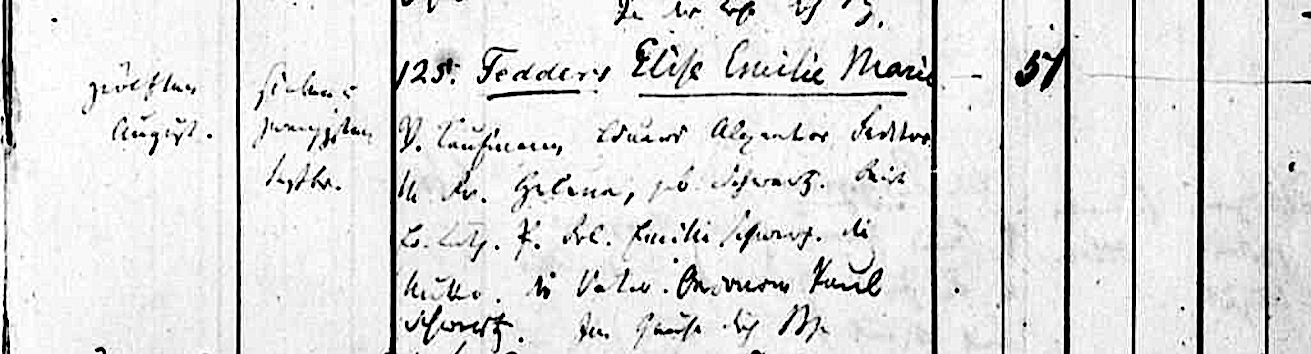 zwölften
August.
sieben u
zwanzigsten
Septbr.
125. Fedders Elise Emilie Marie — 51
V. Kaufmann Eduard Alexander Fedders
M. Helene, geb. Schwartz. Beide
ev. luth. P. Frl. Emilie Schwartz. die
Mutter. der Vater. Paul
Schwartz. Im Hause durch